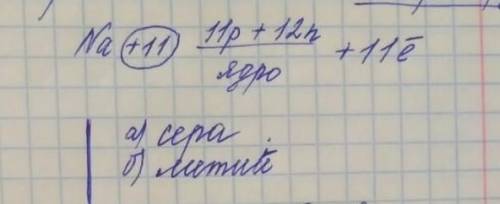 Na (+11) 11p + 12n / ядро + 11ē
а) сера
б) литий